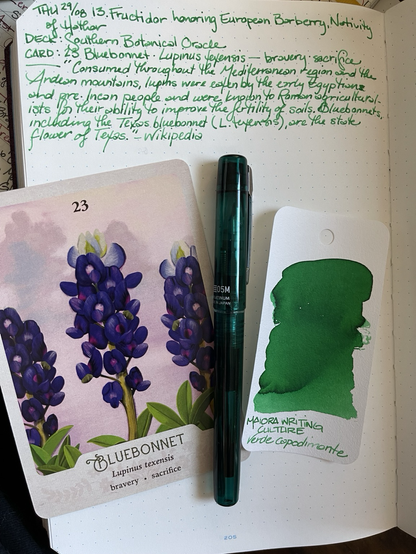 THU 29/08 13. Fructidor honoring European Barberry, Nativity
of Hathor
DECK: Southern Botanical Oracle
CARD: 23 Bluebonnet - Lupinus texensis - bravery - sacrifice
"Consumed throughout the Mediterranean region and the
Andean mountains, lupins were eaten by the early Egyptian
and pre-Incan people and were known to Roman agricultural-
ists for their ability to improve the fertility of soils. Bluebonnets,
including the Texas bluebonnet (L. texensis), are the state
flower of Texas." - Wikipedia
23
BLUEBONNET
Lupinus texensis
bravery • sacrifice
PLATINUM
MAIORA WRITING
CULTURE
Verde Capodimonte
206